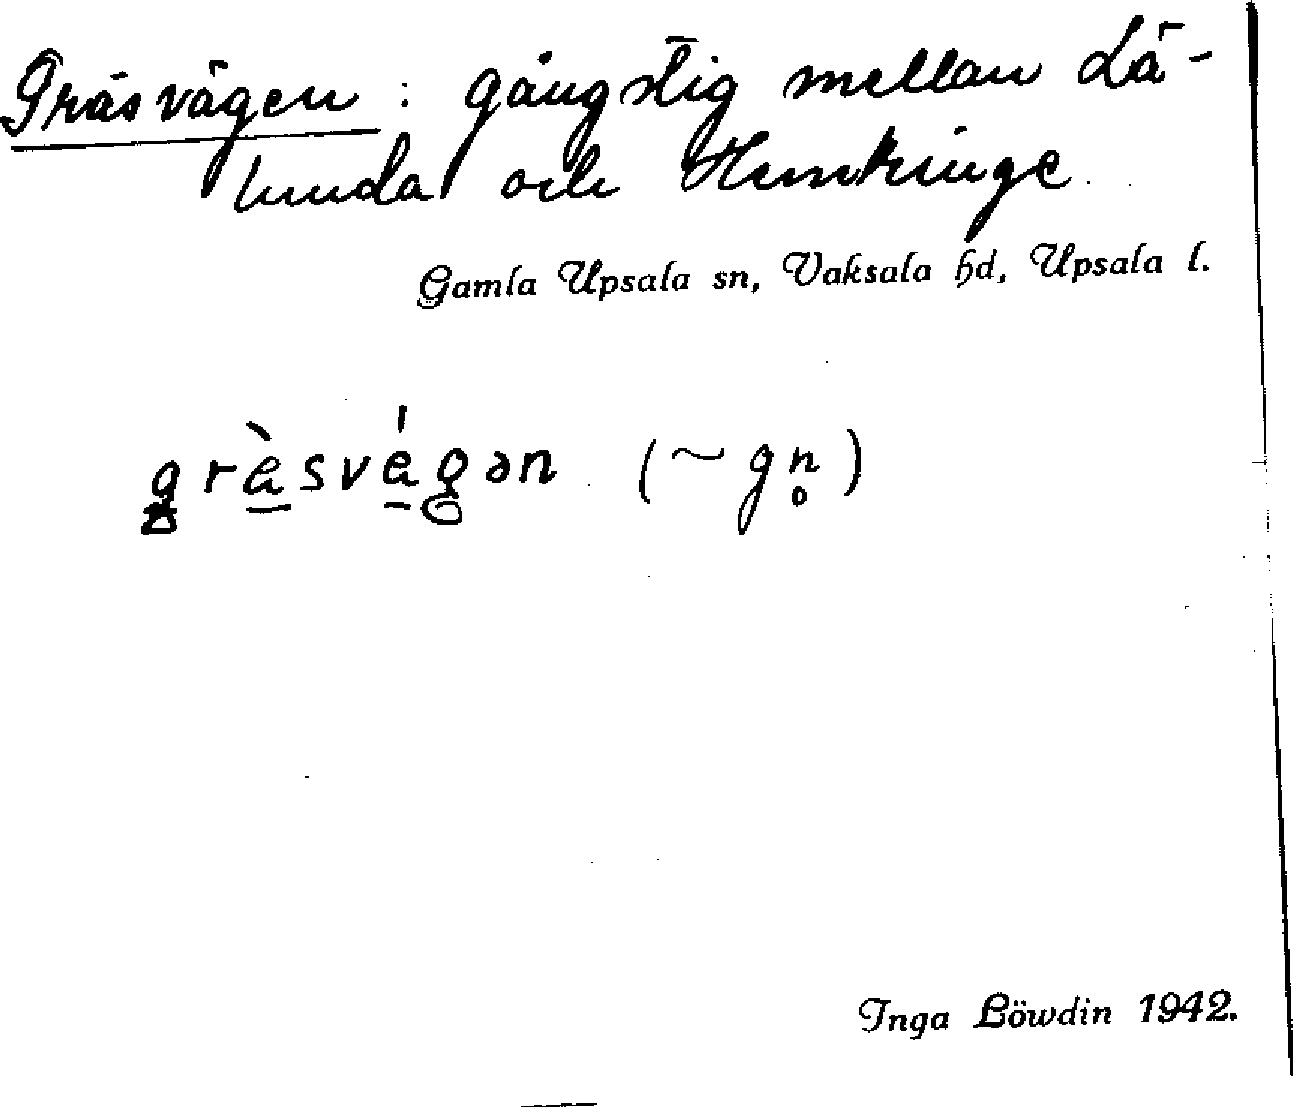 Gräsvägen : gångstig mellan Lä-
bunda och Humkinge
Gamla Upsala sn, Vaksala hd, Upsala l.
grὰsvágən (~ gn̥)
Inga Löwdin 1942.